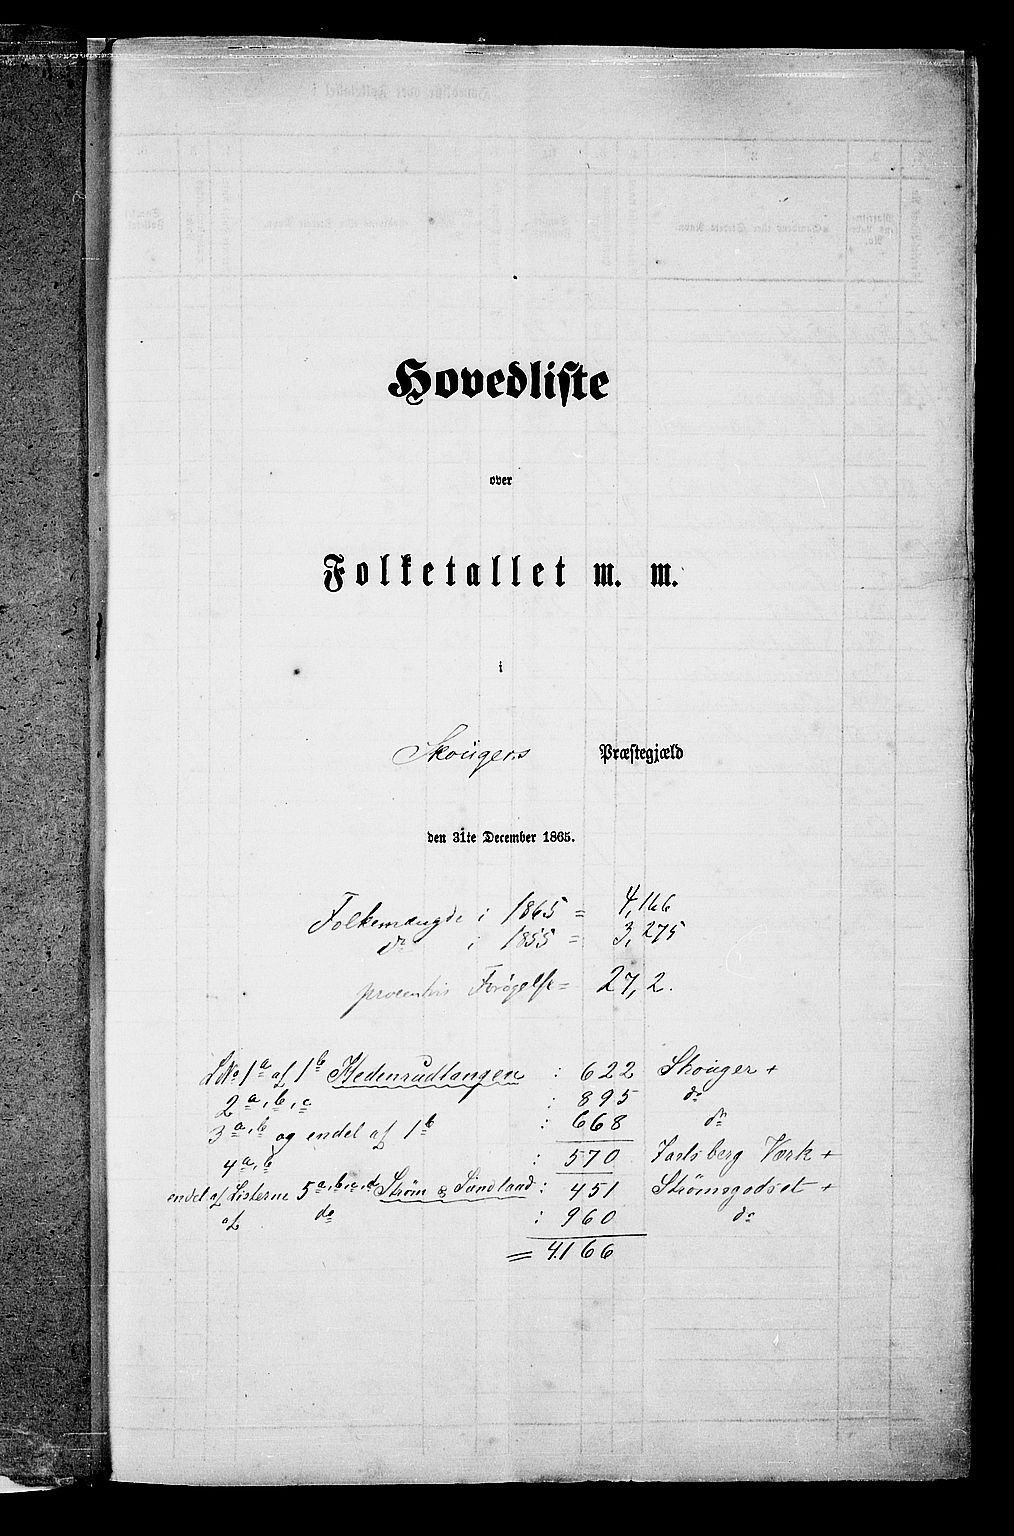 Hovedliste
over
Folketallet m. m.
i
Skougers Præstegjæld
den 31te December 1865.
Folkemængde i 1865 = 4,166
do i 1855 = 3,275
procentvis Forøgelse = 27,2.
LNo 1a af 1b Hedensudlangen : 622 Skouger +
2a,b,c : 895 do
3a,b og endel af 1b : 668 do
4a,b : 570 Jarlsberg Værk +
endel af Listerne 5a,b,c,d Strøm & Sundland : 451 Strømsgodset +
af do : 960 do
= 4166